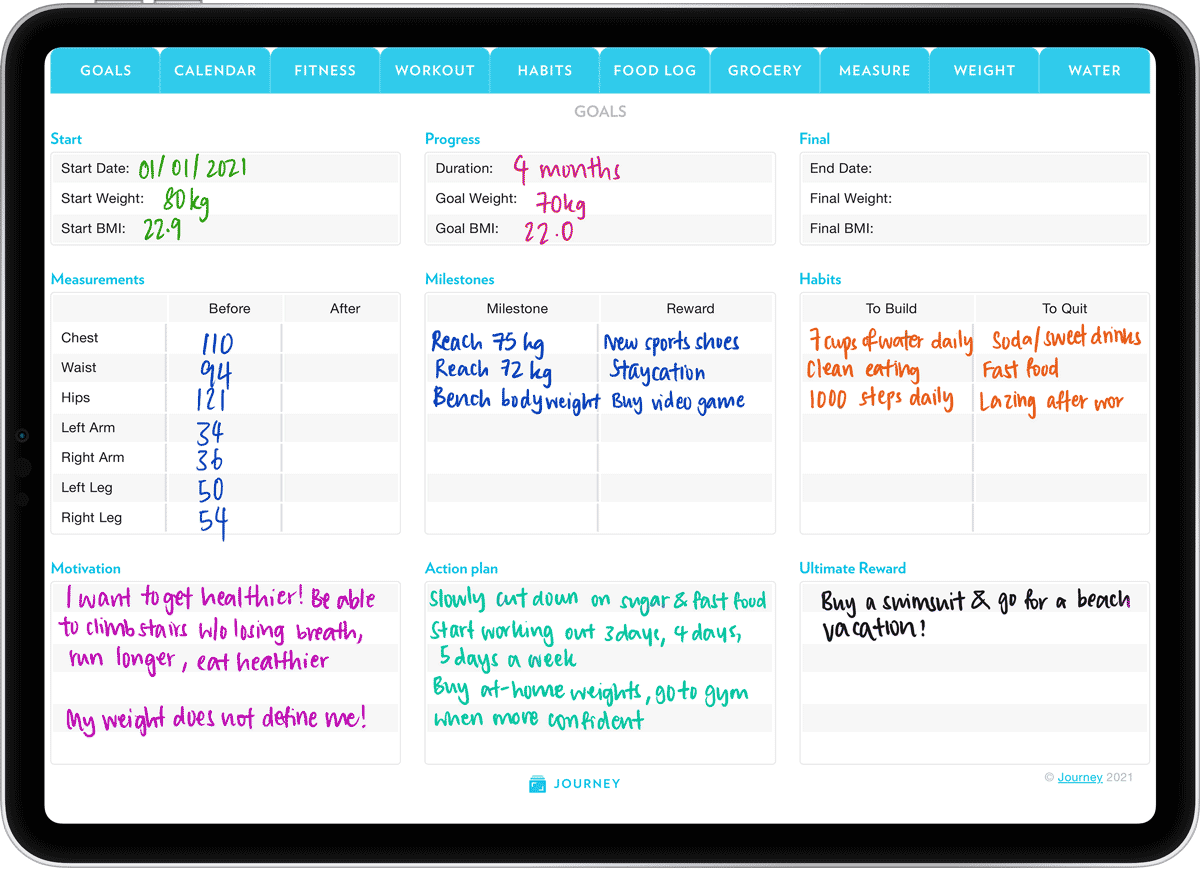 GOALS CALENDAR FITNESS WORKOUT HABITS FOOD LOG GROCERY MEASURE WEIGHT WATER
GOALS
Start
Start Date: 01/01/2021
Start Weight: 80kg
Start BMI: 22.9
Progress
Duration: 4 months
Goal Weight: 70kg
Goal BMI: 22.0
Final
End Date:
Final Weight:
Final BMI:
Measurements
Before After
Chest 110
Waist 94
Hips 121
Left Arm 34
Right Arm 36
Left Leg 50
Right Leg 54
Milestones
Milestone Reward
Reach 75 kg New sports shoes
Reach 72 kg Staycation
Bench bodyweight Buy video game
Habits
To Build To Quit
7 cups of water daily Soda/sweet drinks
Clean eating Fast food
1000 steps daily Lazing after wor
Motivation
I want to get healthier! Be able
to climb stairs w/o losing breath,
run longer, eat healthier
My weight does not define me!
Action plan
Slowly cut down on sugar & fast food
Start working out 3 days, 4 days,
5 days a week
Buy at-home weights, go to gym
when more confident
Ultimate Reward
Buy a swimsuit & go for a beach
vacation!
JOURNEY
© Journey 2021